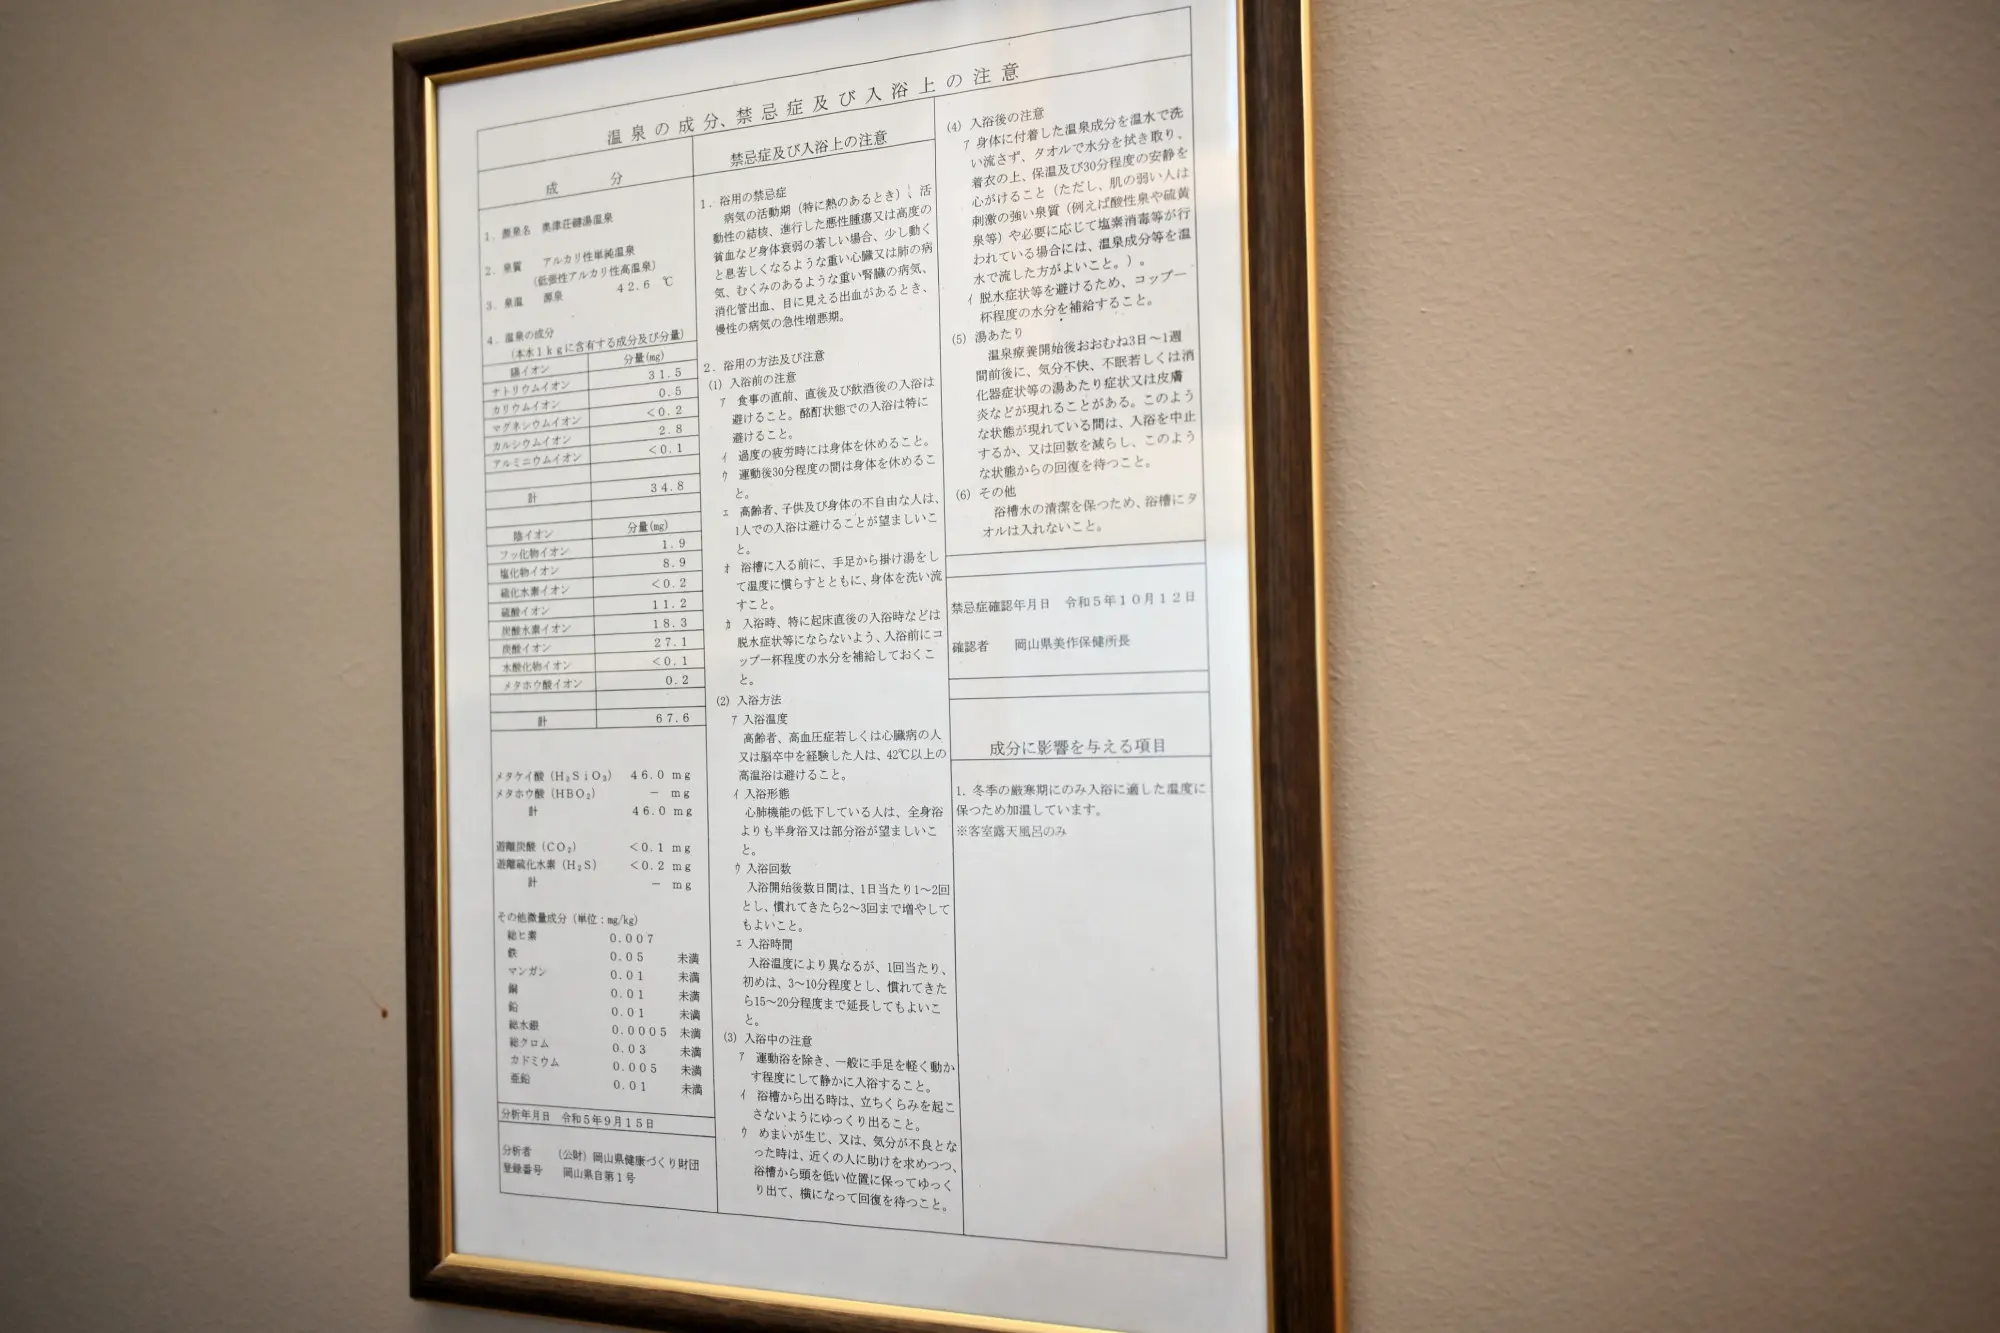 温泉の成分、禁忌症及び入浴上の注意
成　　分
1. 源泉名　奥津荘鍵湯温泉
2. 泉質　アルカリ性単純温泉
(低張性アルカリ性高温泉)
3. 泉温　源泉　42.6 ℃
4. 温泉の成分
(本水1kgに含有する成分及び分量)
陽イオン　分量(mg)
ナトリウムイオン　31.5
カリウムイオン　0.5
マグネシウムイオン　<0.2
カルシウムイオン　2.8
アルミニウムイオン　<0.1
計　34.8
陰イオン　分量(mg)
フッ化物イオン　1.9
塩化物イオン　8.9
硫化水素イオン　<0.2
硫酸イオン　11.2
炭酸水素イオン　18.3
炭酸イオン　27.1
水酸化物イオン　<0.1
メタホウ酸イオン　0.2
計　67.6
メタケイ酸(H₂SiO₃)　46.0 mg
メタホウ酸(HBO₂)　－ mg
計　46.0 mg
遊離炭酸(CO₂)　<0.1 mg
遊離硫化水素(H₂S)　<0.2 mg
計　－ mg
その他微量成分(単位:mg/kg)
総ヒ素　0.007
鉄　0.05　未満
マンガン　0.01　未満
銅　0.01　未満
鉛　0.01　未満
総水銀　0.0005　未満
総クロム　0.03　未満
カドミウム　0.005　未満
亜鉛　0.01　未満
分析年月日　令和5年9月15日
分析者　(公財)岡山県健康づくり財団
登録番号　岡山県自第1号
禁忌症及び入浴上の注意
1. 浴用の禁忌症
病気の活動期(特に熱のあるとき)、活
動性の結核、進行した悪性腫瘍又は高度の
貧血など身体衰弱の著しい場合、少し動く
と息苦しくなるような重い心臓又は肺の病
気、むくみのあるような重い腎臓の病気、
消化管出血、目に見える出血があるとき、
慢性の病気の急性増悪期。
2. 浴用の方法及び注意
(1) 入浴前の注意
ｱ 食事の直前、直後及び飲酒後の入浴は
避けること。酩酊状態での入浴は特に
避けること。
ｲ 過度の疲労時には身体を休めること。
ｳ 運動後30分程度の間は身体を休めるこ
と。
ｴ 高齢者、子供及び身体の不自由な人は、
1人での入浴は避けることが望ましいこ
と。
ｵ 浴槽に入る前に、手足から掛け湯をし
て温度に慣らすとともに、身体を洗い流
すこと。
ｶ 入浴時、特に起床直後の入浴時などは
脱水症状等にならないよう、入浴前にコ
ップ一杯程度の水分を補給しておくこ
と。
(2) 入浴方法
ｱ 入浴温度
高齢者、高血圧症若しくは心臓病の人
又は脳卒中を経験した人は、42℃以上の
高温浴は避けること。
ｲ 入浴形態
心肺機能の低下している人は、全身浴
よりも半身浴又は部分浴が望ましいこ
と。
ｳ 入浴回数
入浴開始後数日間は、1日当たり1～2回
とし、慣れてきたら2～3回まで増やして
もよいこと。
ｴ 入浴時間
入浴温度により異なるが、1回当たり、
初めは、3～10分程度とし、慣れてきた
ら15～20分程度まで延長してもよいこ
と。
(3) 入浴中の注意
ｱ 運動浴を除き、一般に手足を軽く動か
す程度にして静かに入浴すること。
ｲ 浴槽から出る時は、立ちくらみを起こ
さないようにゆっくり出ること。
ｳ めまいが生じ、又は、気分が不良とな
った時は、近くの人に助けを求めつつ、
浴槽から頭を低い位置に保ってゆっく
り出て、横になって回復を待つこと。
(4) 入浴後の注意
ｱ 身体に付着した温泉成分を温水で洗
い流さず、タオルで水分を拭き取り、
着衣の上、保温及び30分程度の安静を
心がけること(ただし、肌の弱い人は
刺激の強い泉質(例えば酸性泉や硫黄
泉等)や必要に応じて塩素消毒等が行
われている場合には、温泉成分等を温
水で流した方がよいこと。)。
ｲ 脱水症状等を避けるため、コップ一
杯程度の水分を補給すること。
(5) 湯あたり
温泉療養開始後おおむね3日～1週
間前後に、気分不快、不眠若しくは消
化器症状等の湯あたり症状又は皮膚
炎などが現れることがある。このよう
な状態が現れている間は、入浴を中止
するか、又は回数を減らし、このよう
な状態からの回復を待つこと。
(6) その他
浴槽水の清潔を保つため、浴槽にタ
オルは入れないこと。
禁忌症確認年月日　令和5年10月12日
確認者　岡山県美作保健所長
成分に影響を与える項目
1. 冬季の厳寒期にのみ入浴に適した温度に
保つため加温しています。
※客室露天風呂のみ